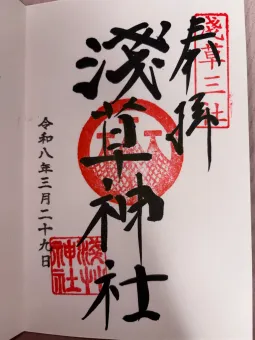 奉拝
淺草三社
淺草神社
令和八年三月二十九日
淺草
神社